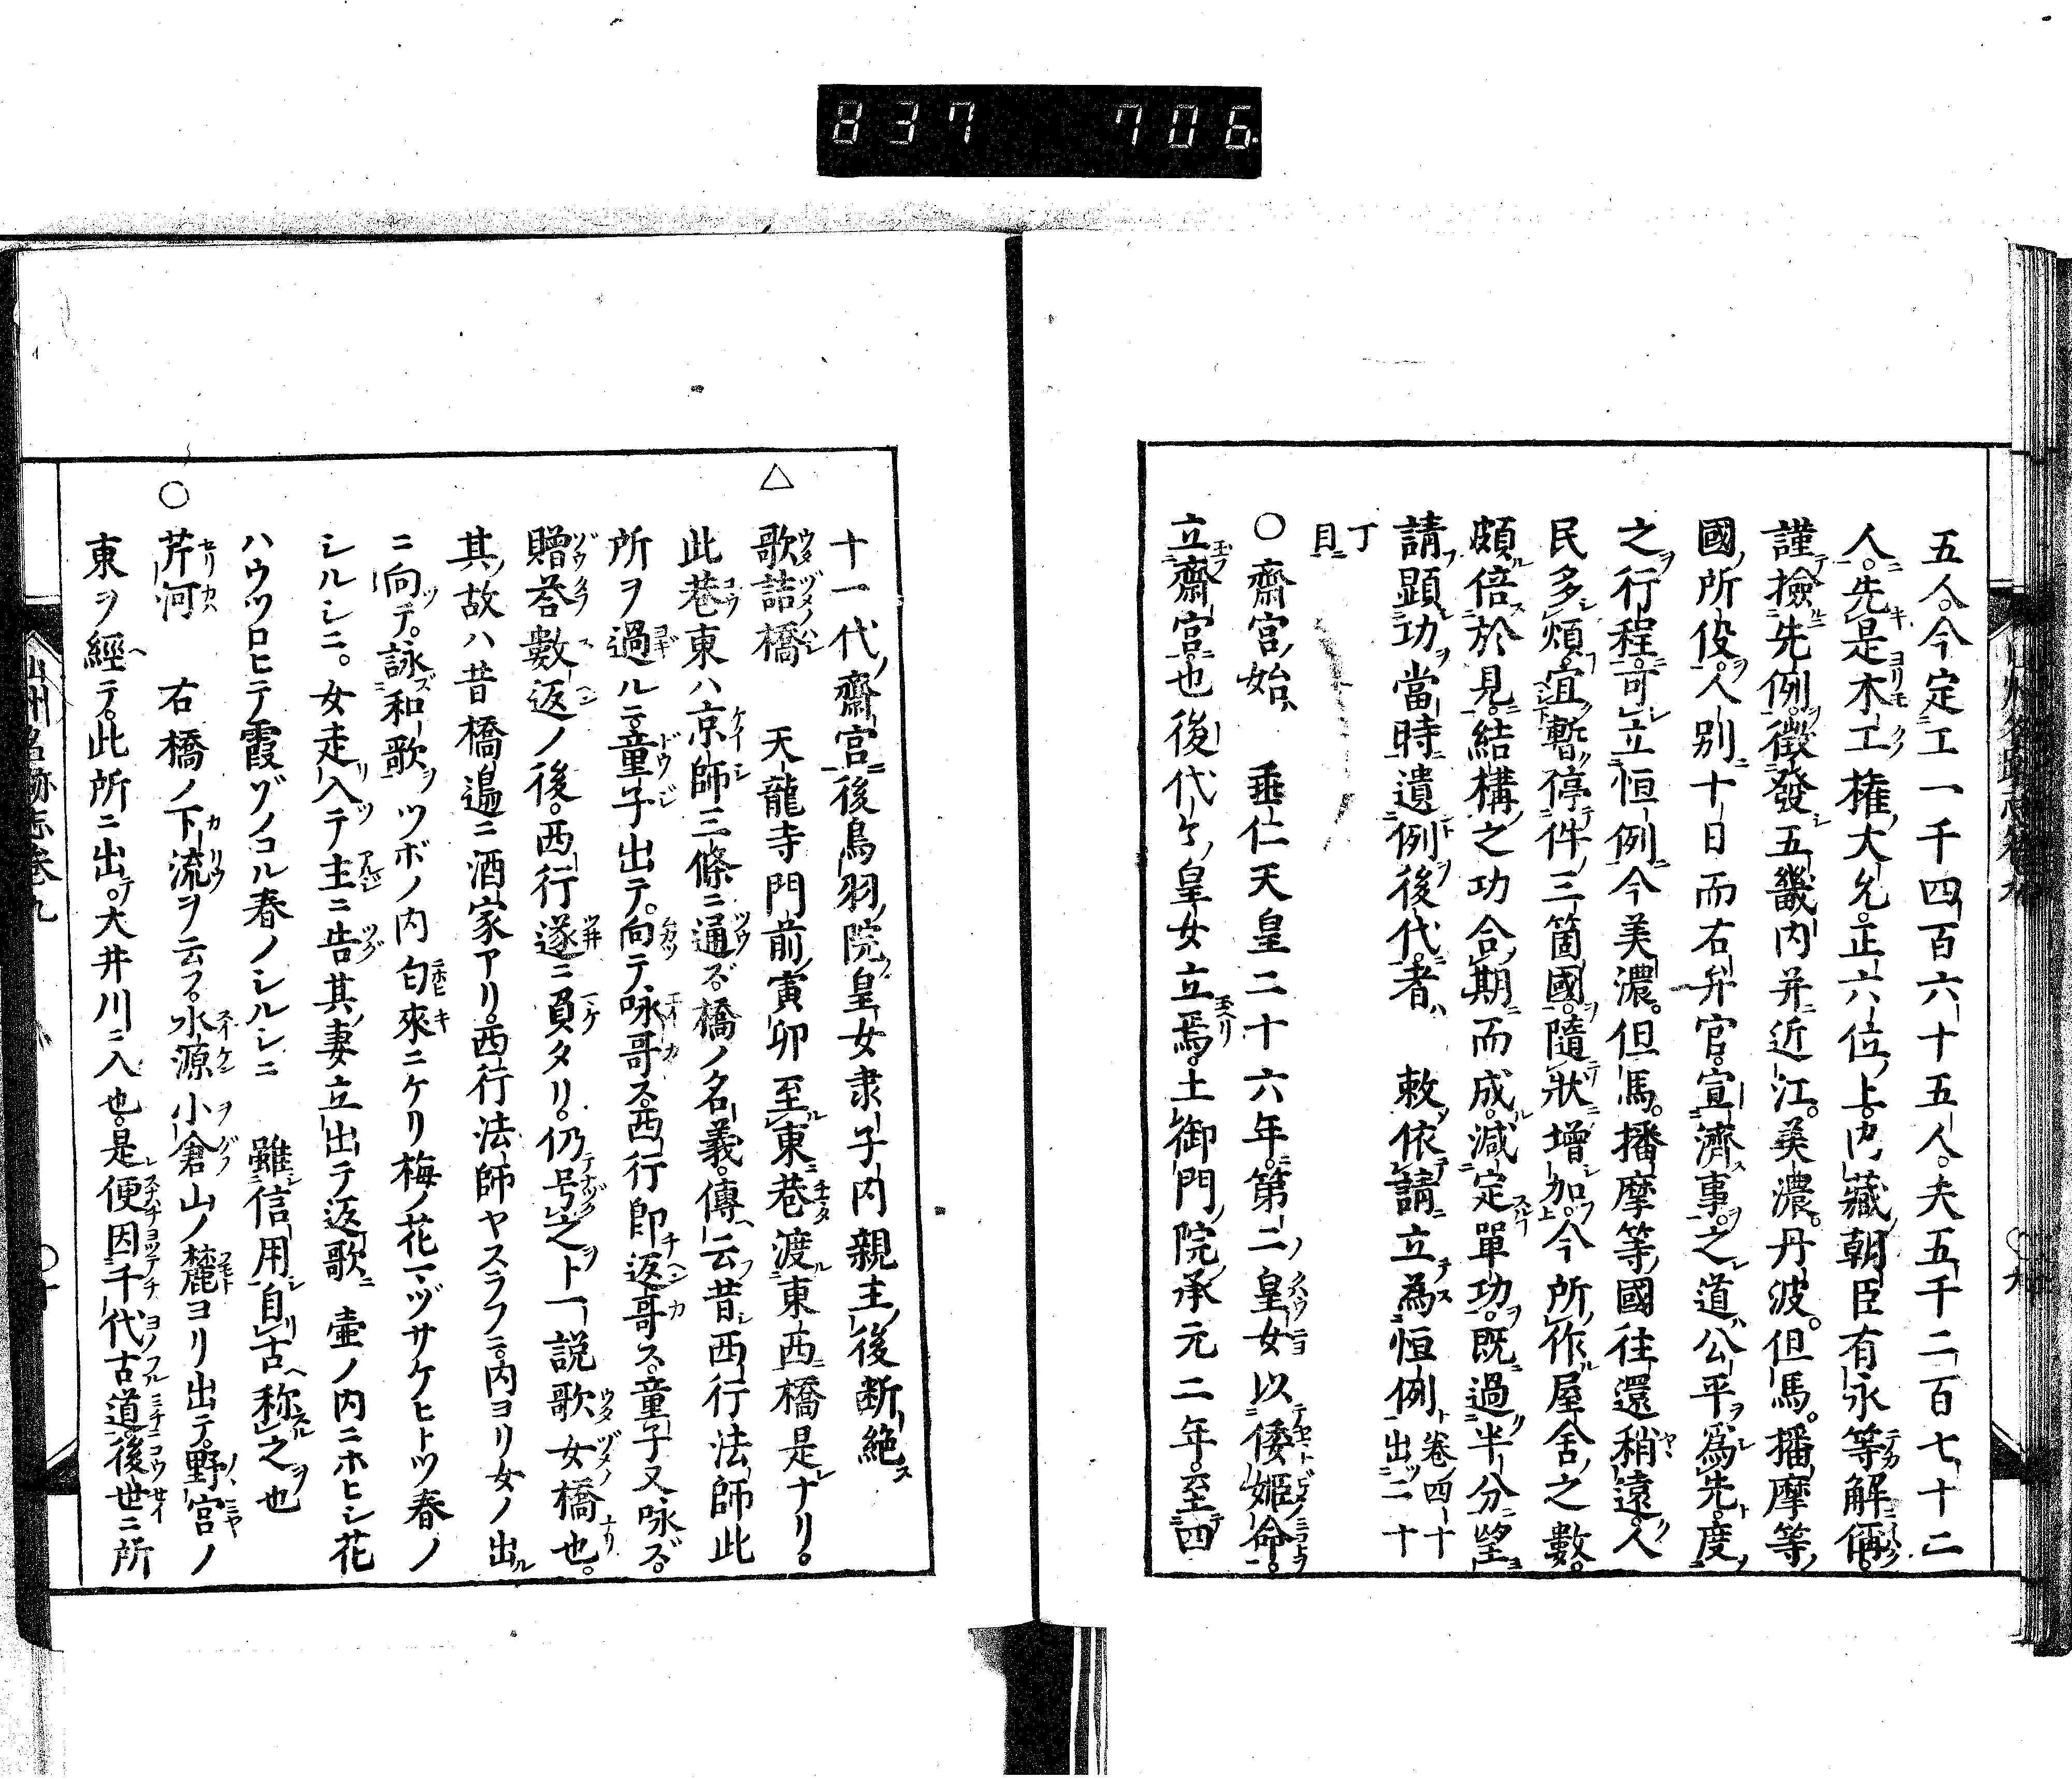 837 706
五人。今定工一千四百六十五人。夫五千二百七十二
人。先是木工權大允正六位上内藏朝臣有永等解偁。
謹撿先例。徴發五畿内并近江。美濃。丹波。但馬。播摩等
國所役。人別十日而右弁官。宣濟事之道公平爲先。度
之行程。可立恒例今美濃。但馬。播摩等國往還稍遠。人
民多煩。宜暫停件三箇國。隨狀增加。今所作屋舍之數。
頗倍於見。結構之功合期而成。減定單功。既過半分望
請顯功當時遺例後代者 敕依請立為恒例卷四十出二十
丁
貝ニ
○齋宮始 垂仁天皇二十六年。第二皇女以倭姬命。
立齋宮也後代々皇女立焉。土御門院承元二年。至四
十一代齋宮後鳥羽院皇女隶子内親王後断絶ス
△歌詰橋 天龍寺門前寅卯至東巷渡東西橋是ナリ。
此巷東ハ京師三條ニ通ズ。橋ノ名義。傳云昔西行法師此
所ヲ過ルニ。童子出テ。向テ咏哥ス。西行即返哥ス。童子又咏ズ。
贈荅數返ノ後。西行遂ニ負タリ。仍号之ト一說歌女橋也。
其故ハ昔橋邉ニ酒家アリ。西行法師ヤスラフニ。内ヨリ女ノ出ル
ニ向テ。詠和歌ヲツボノ内匂來ニケリ梅ノ花マヅサケヒトツ春ノ
シルシニ。女走入テ主ニ告其妻立出テ返歌ニ壷ノ内ニホヒシ花
ハウツロヒテ霞ゾノコル春ノシルシニ 雖信用自古称之也
○芹河 右橋ノ下流ヲ云フ。水源小倉山ノ麓ヨリ出テ。野宮ノ
東ヲ經テ。此所ニ出テ。大井川ニ入也。是便因千代古道後世ニ所
山州名跡志卷九